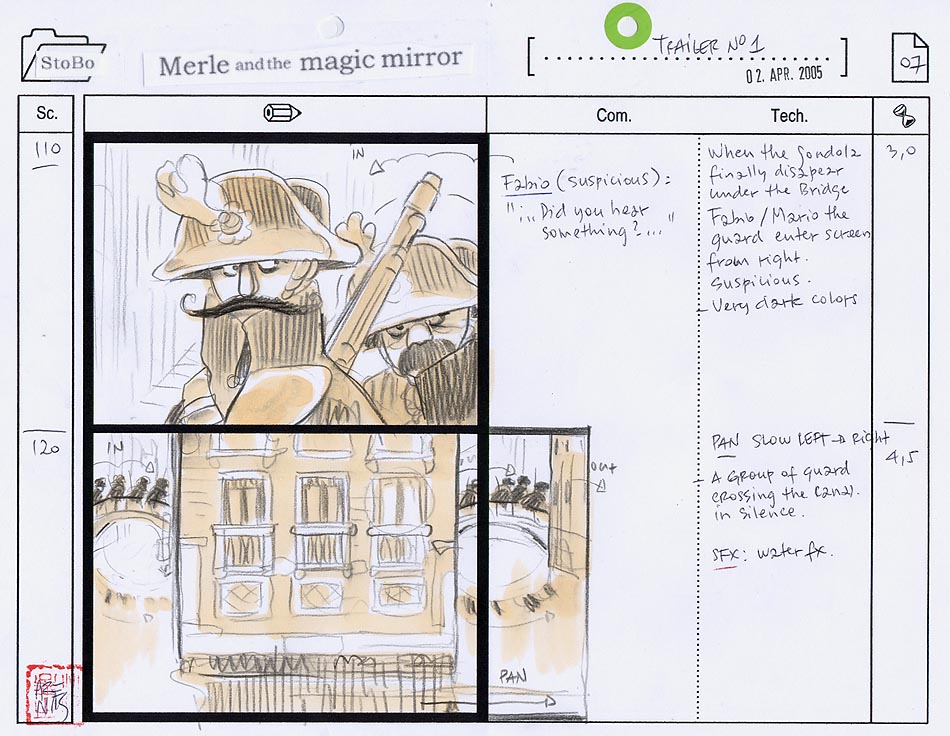 StoBo
Merle and the magic mirror
TRAILER No 1
02. APR. 2005
07
Sc.
Com.
Tech.
110
IN
Fabio (suspicious):
"... Did you hear
something?... "
When the gondola
finally disapear
under the Bridge
Fabio / Mario the
guard enter screen
from right.
suspicious.
- Very dark colors
3,0
120
IN
out
PAN
PAN SLOW LEFT → Right
- A Group of guard
crossing the canal.
in silence.
SFX: water fx.
4,5